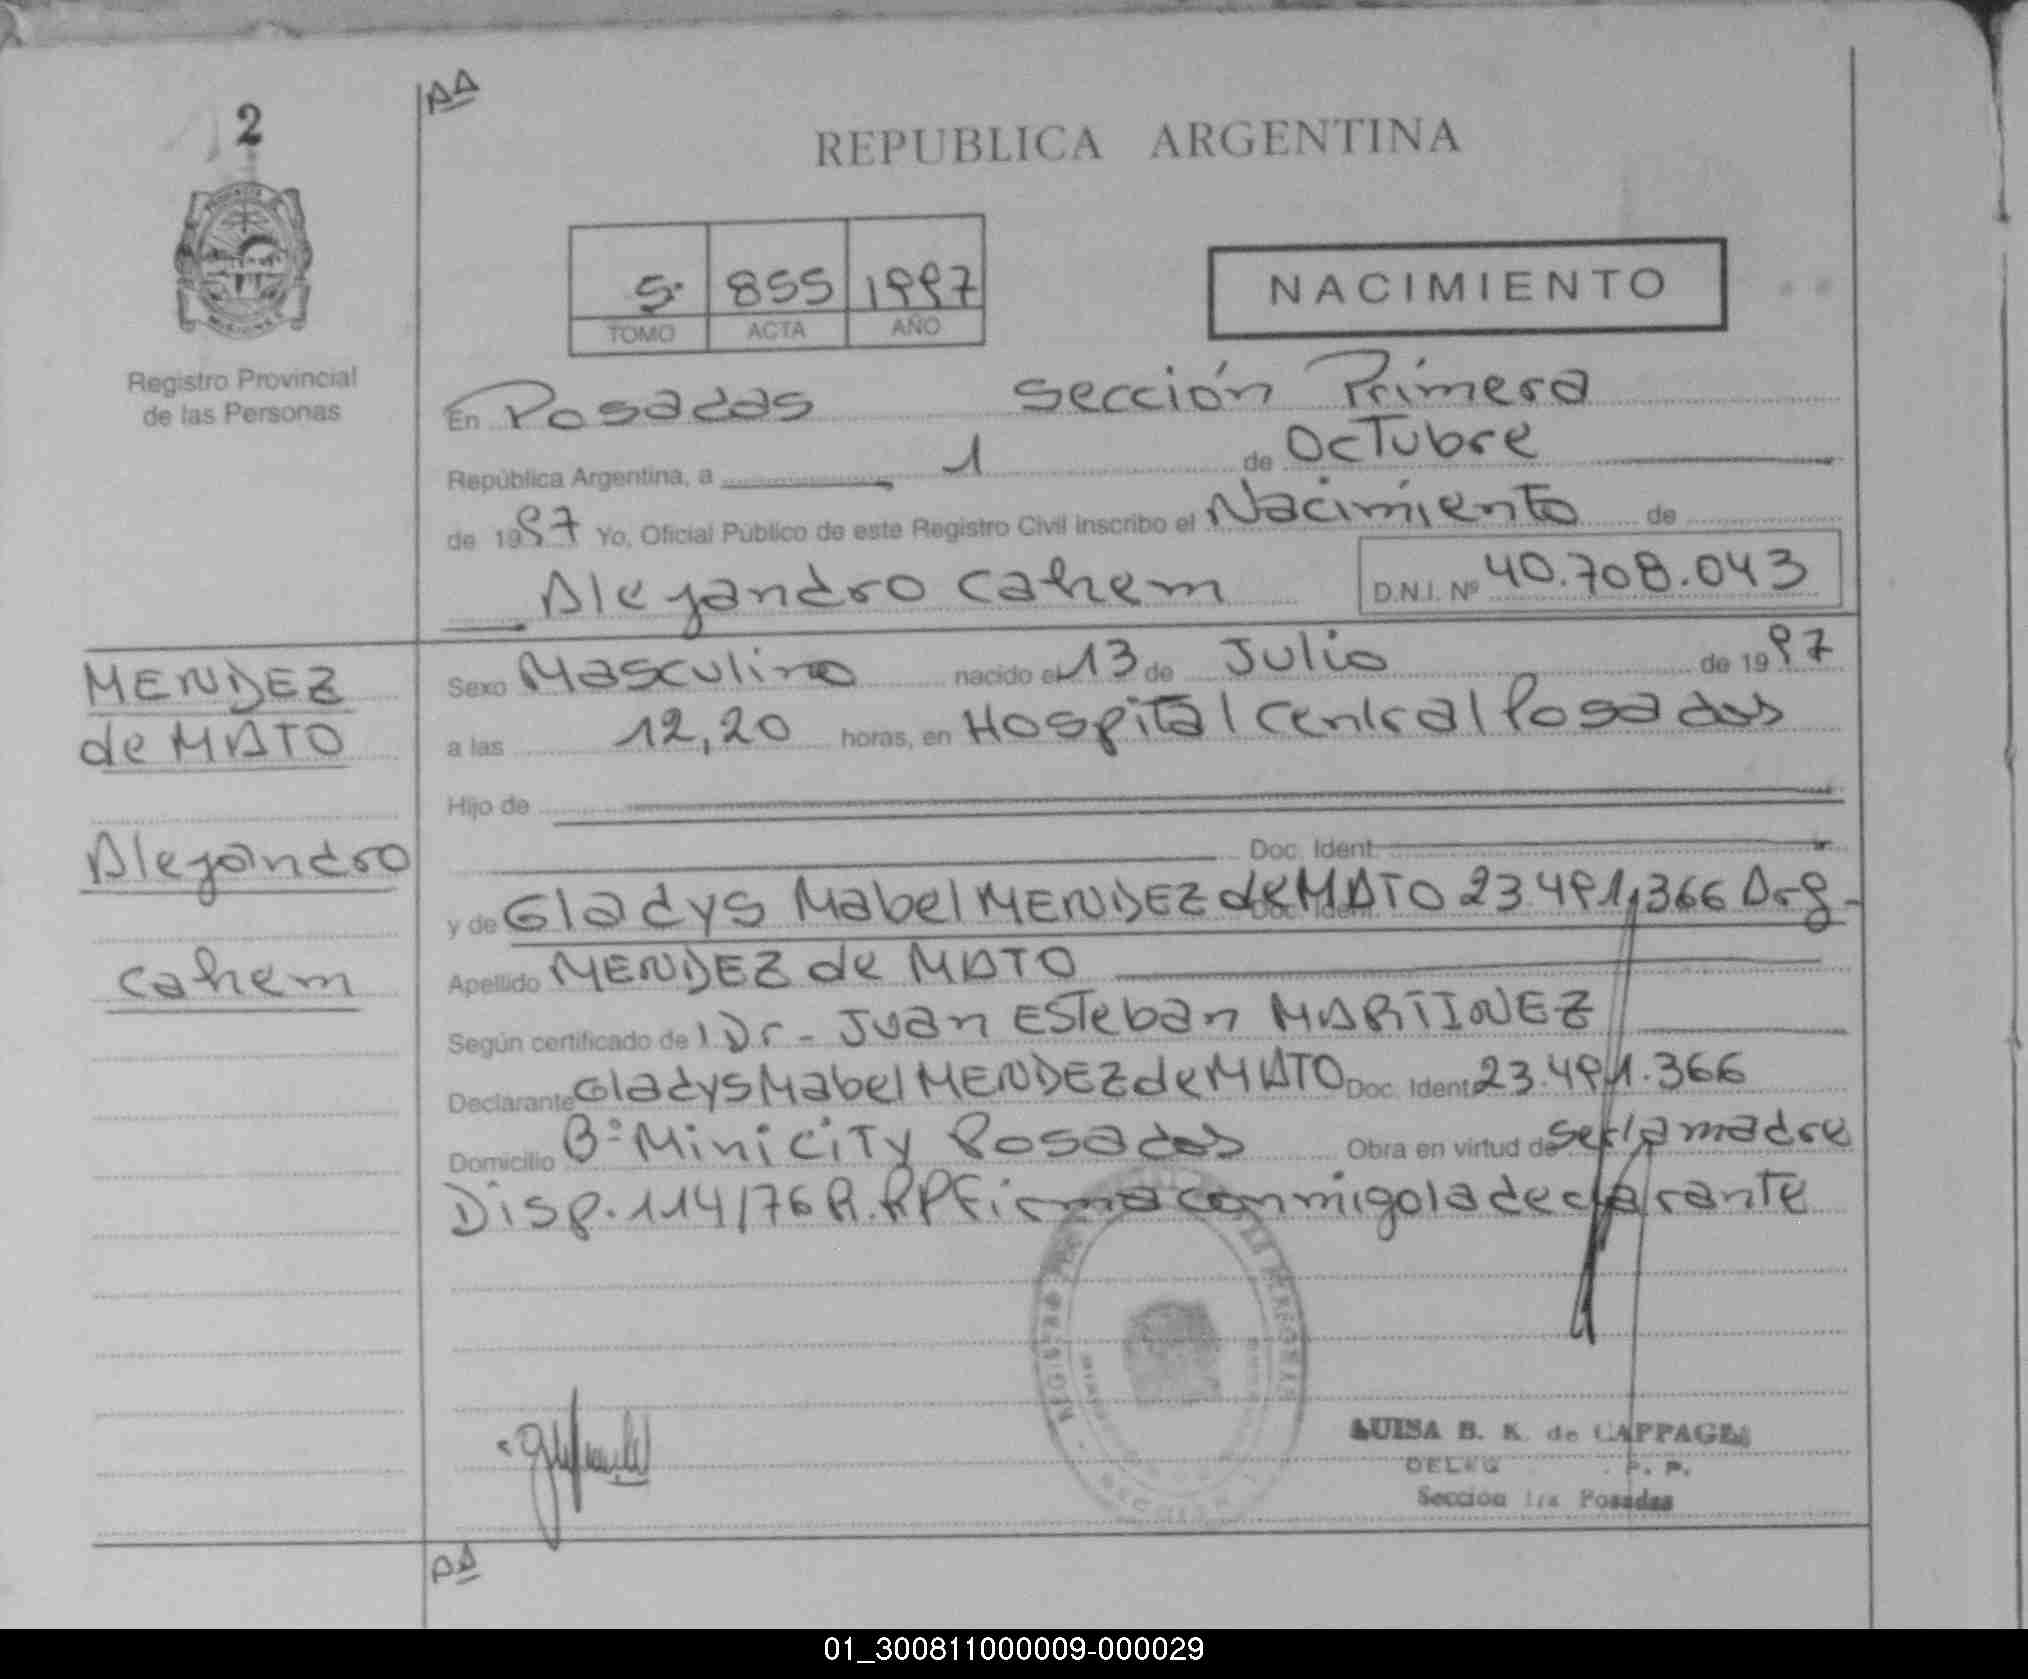 AA
2
REPUBLICA ARGENTINA
5. 855 1997
TOMO ACTA AÑO
NACIMIENTO
Registro Provincial
de las Personas
En Posadas Sección Primera
República Argentina, a 1 de Octubre
de 1997 Yo, Oficial Público de este Registro Civil inscribo el Nacimiento de
Alejandro Cahem D.N.I. Nº 40.708.043
MENDEZ
de MATO
Alejandro
Cahem
Sexo Masculino nacido el 13 de Julio de 1997
a las 12,20 horas, en Hospital Central Posadas
Hijo de
Doc. Ident.
y de Gladys Mabel MENDEZ de MATO Doc. Ident. 23.491.366 Arg-
Apellido MENDEZ de MATO
Según certificado de l Dr- Juan Esteban MARTINEZ
Declarante Gladys Mabel MENDEZ de MATO Doc. Ident 23.491.366
Domicilio Bº Mini City Posadas Obra en virtud de ser la madre
Disp. 114/76 R.RPFirma conmigo la declarante
LUISA B. K. de CAPPAGLI
P. P.
Sección 1ra Posadas
AA
01_300811000009-000029